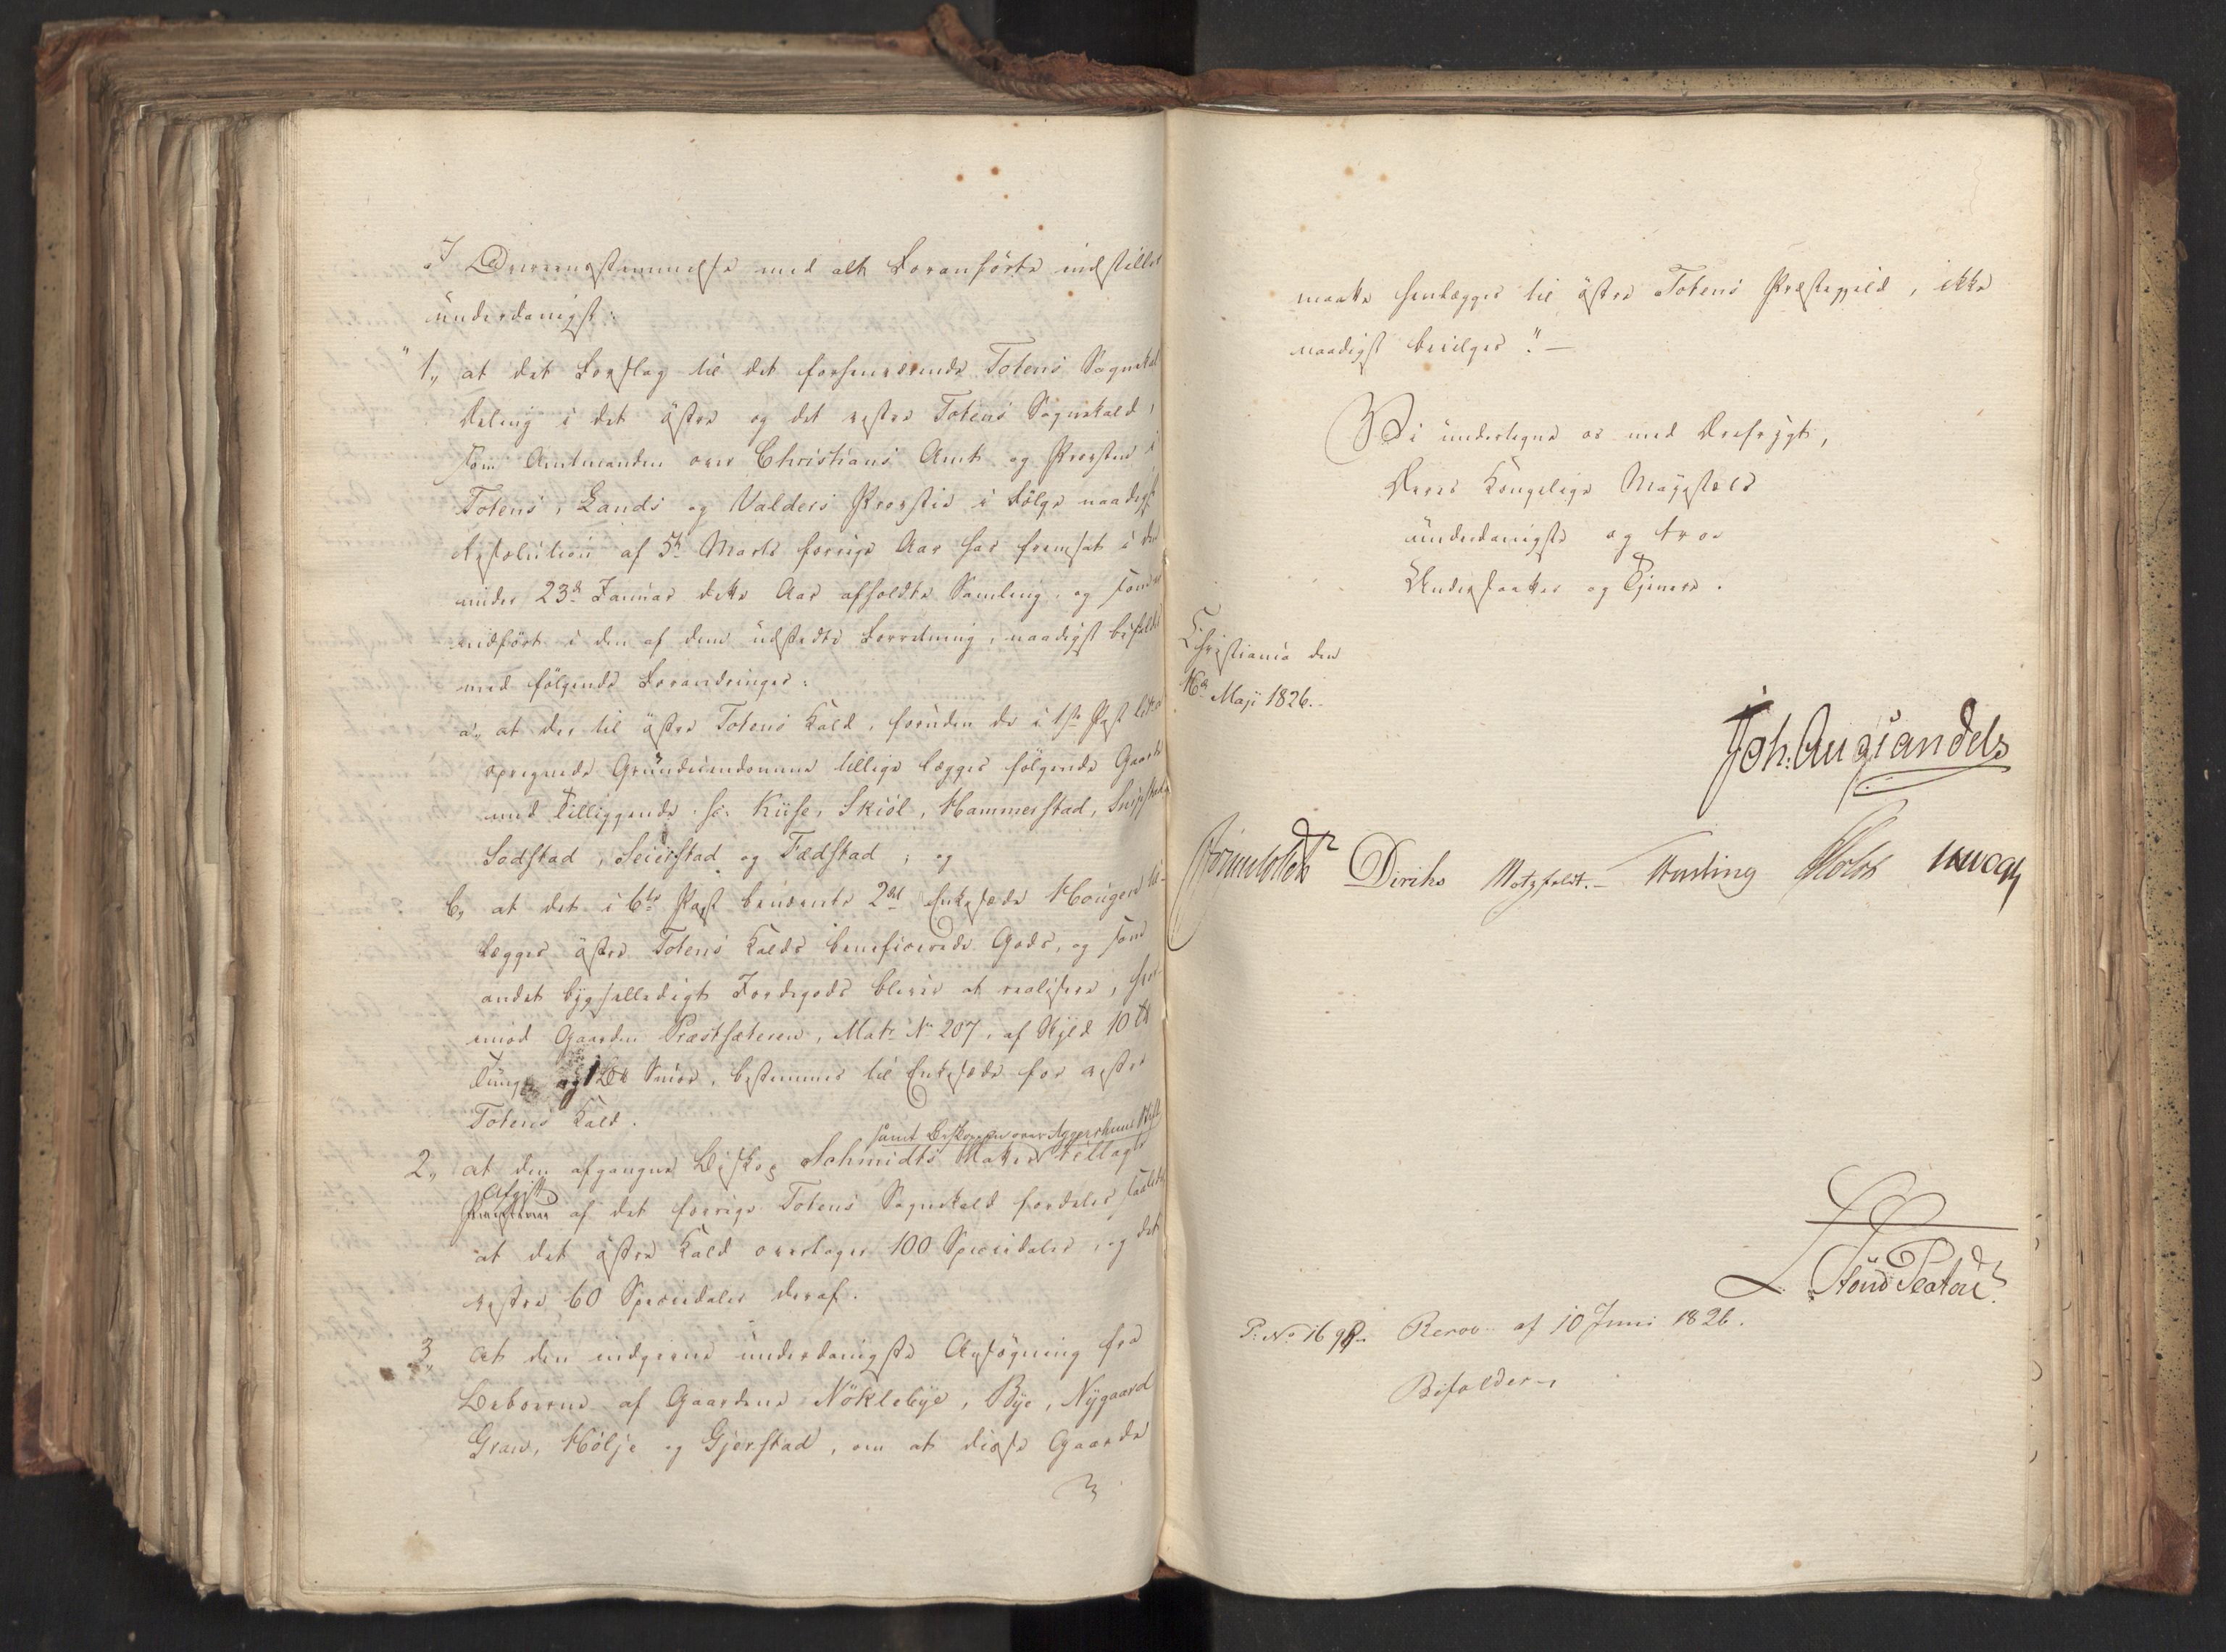 I Overeensstemmelse med alt Foranførte indstilles
underdanigst:
"1., at det Forslag til det forhenværende Totens Sognekalds
Deling i det østre og det vestre Totens Sognekald,
som Amtmanden over Christians Amt og Provsten i
Totens, Lands og Valders Provstie i Følge naadigst
Resolution af 5te Marts forrige Aar har fremsat i den
under 23de Januar dette Aar afholdte Samling, og som er
indført i den af dem udstedte Forretning, naadigst bifaldes
med følgende Forandringer:
a., at der til østre Totens Kald, foruden de i 1ste Post
opregnede Grundeiendomme tillige lægges følgende Gaarde
med Tilliggende: Kiise, Skiøl, Hammerstad,
Sodstad, Seierstad og Fædstad; og
b, at det i 6te Post benævnte 2det Enkesæde Hougen
lægges østre Totens Kalds beneficerede Gods, og som
andet bygselledigt Jordegods bliver at realisere,
imod Gaarden Præstsæteren, Matr. No 207, af Skyld 10 ℔
Tunge og 1 B℔ Smør, bestemmes til Enkesæde for vestre
Totens Kald.
samt Biskoppen over Aggershuus Stift
2., at den afgangne Biskop Schmidts Enke tillagte
Afgift
af det forrige Totens Sognekald fordeles saaledes
at det østre Kald overtager 100 Speciedaler, og det
vestre 60 Speciedaler deraf.
3., at den indgivne underdanigste Ansøgning fra
Beboerne af Gaardene Nöklebye, Bye, Nygaard
Gran, Hölje og Gjerstad, om at disse Gaarde
maatte henlægges til østre Totens Præstegjeld, ikke
naadigst bevilges". —
Vi undertegne os med Ærefrygt,
Deres Kongelige Majestæts
underdanigste og troe
Undersaatter og Tjenere.
Christiania den
16de Maji 1826.
Joh: Aug: Sandels
Diriks Motzfeldt. Holst
P: No 16 Resol. af 10 Juni 1826.
Bifaldes